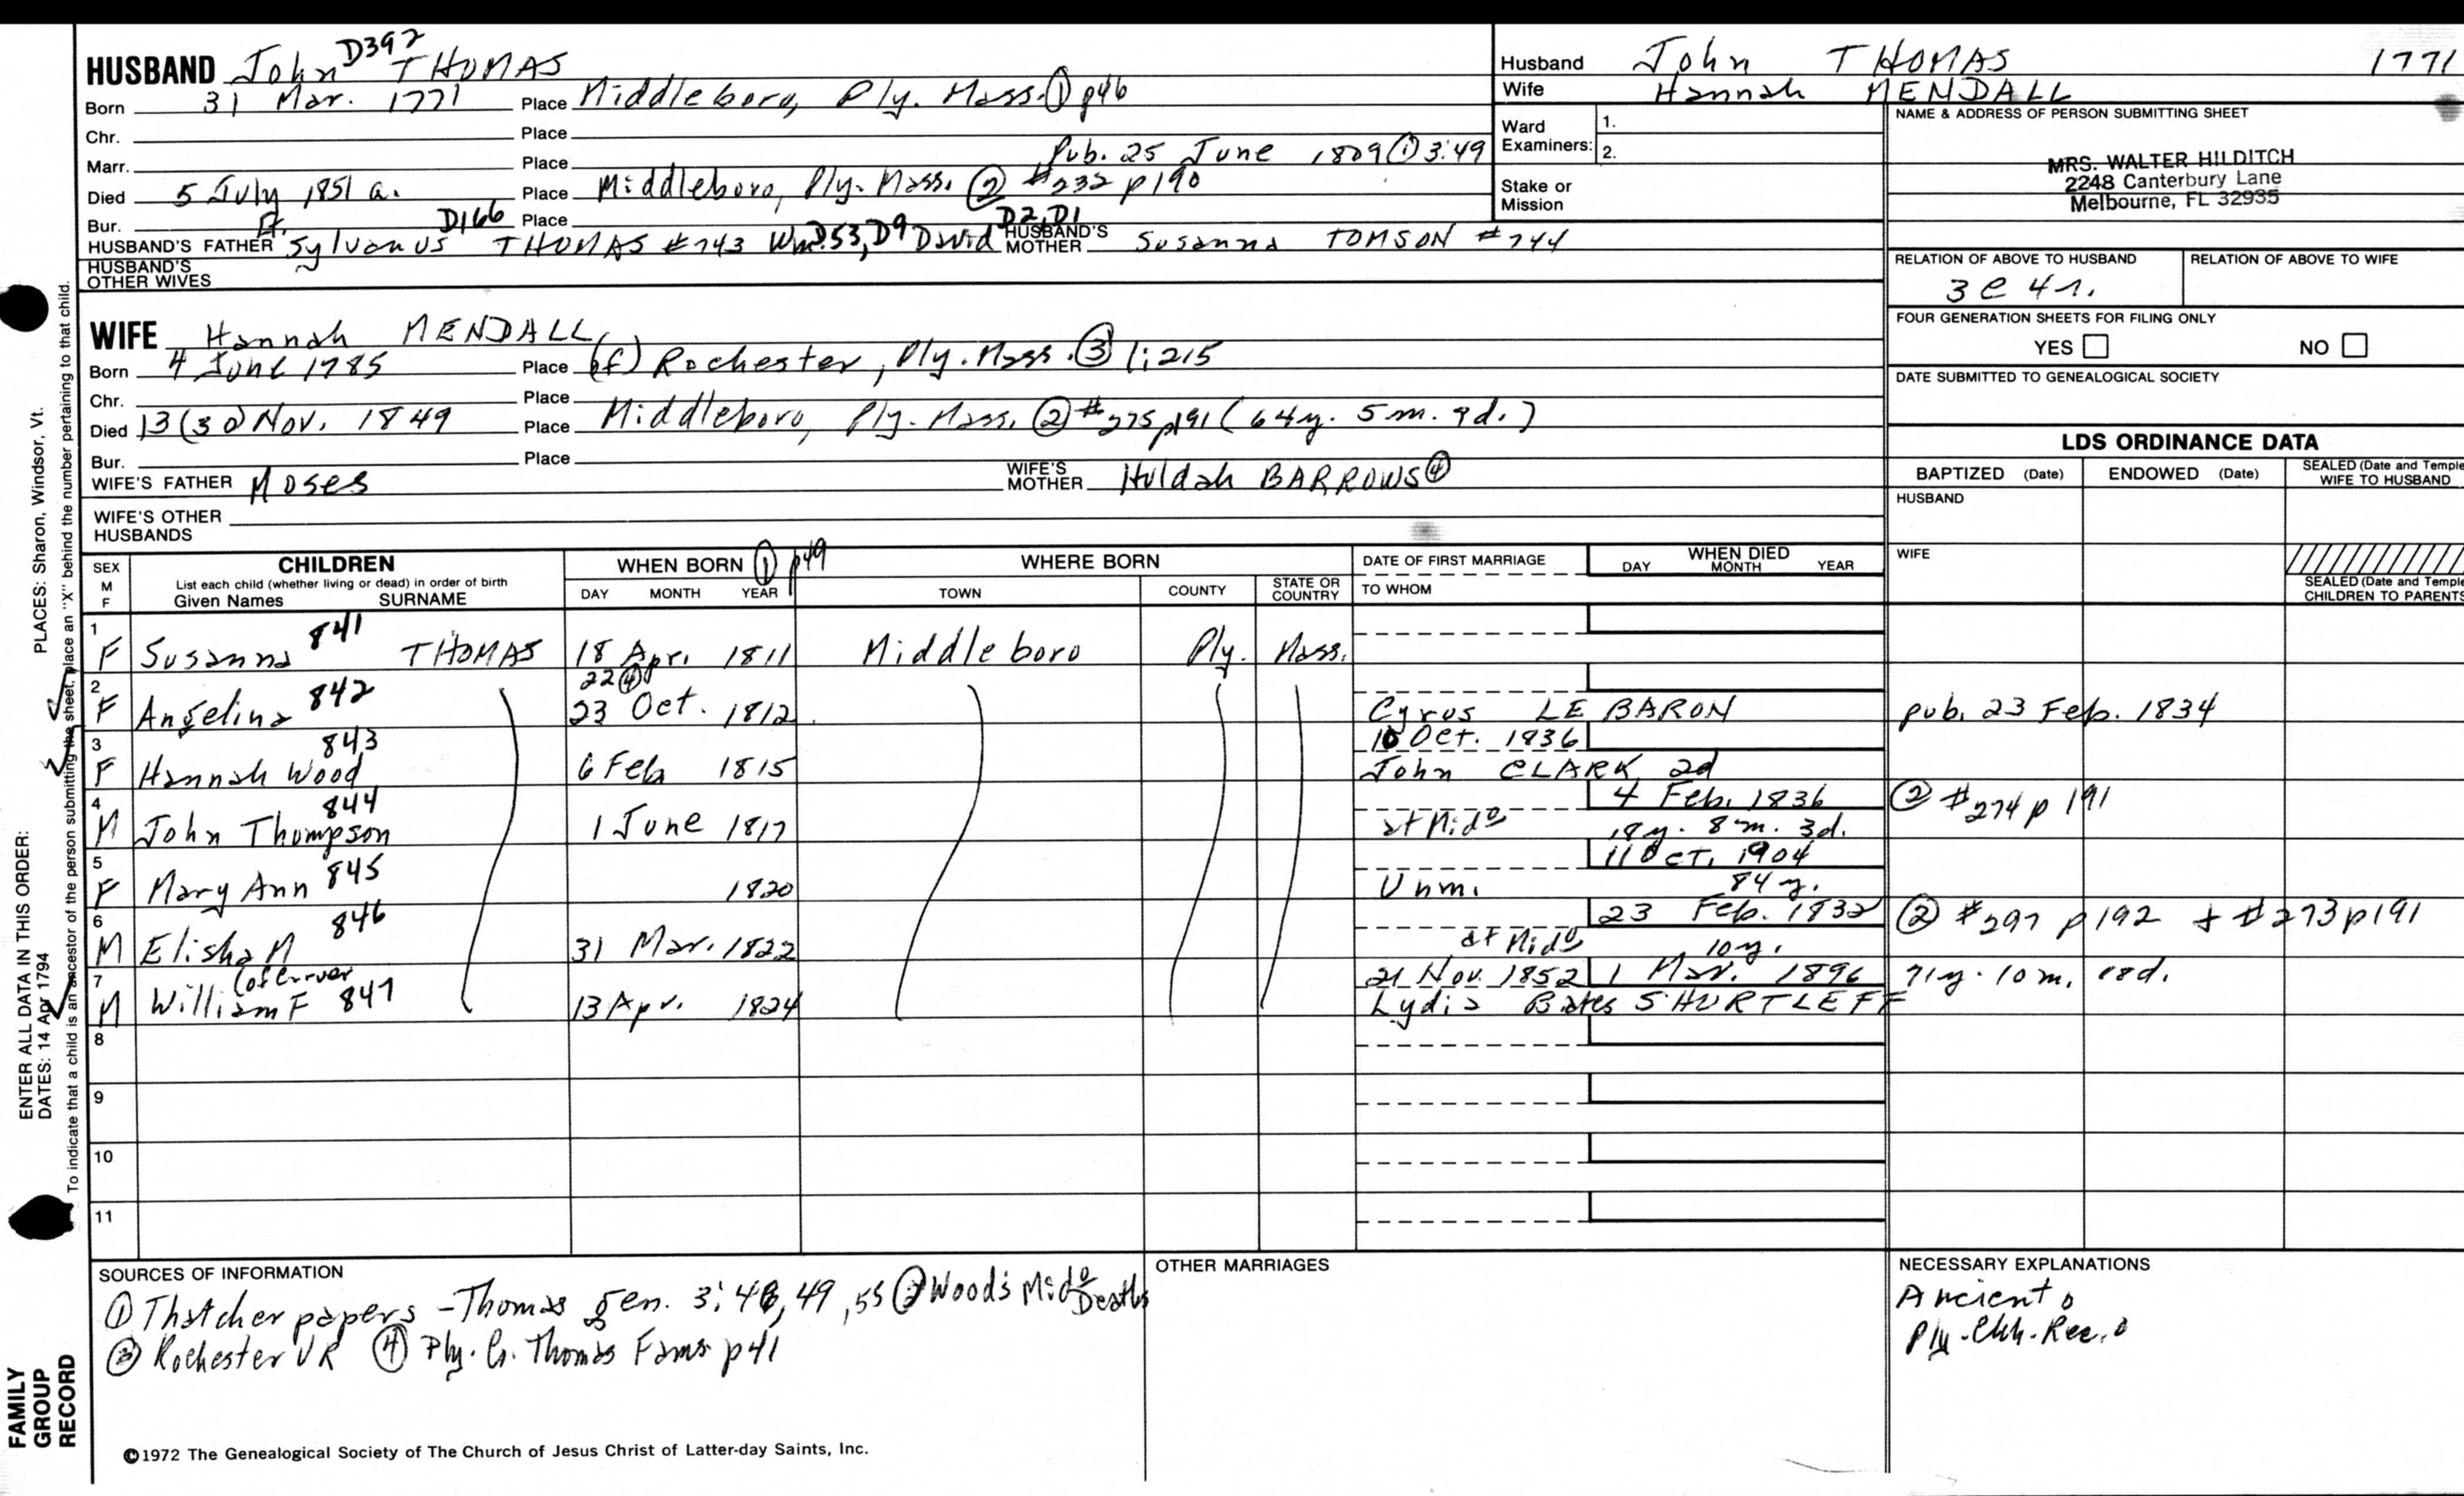 HUSBAND John D392 THOMAS
Born 31 Mar. 1771 Place Middleboro, Ply. Mass. ① p46
Chr. Place
Marr. Place Pub. 25 June 1809 ① 3:49
Died 5 July 1851 a. Place Middleboro, Ply. Mass. ② #232 p190
Bur. Place
HUSBAND'S FATHER Sylvanus D166 THOMAS #743 Wm D53, D9 David D2, D1 HUSBAND'S MOTHER Susanna TOMSON #744
HUSBAND'S OTHER WIVES
WIFE Hannah MENDALL
Born 4 June 1785 Place (of) Rochester, Ply. Mass. ③ 1:215
Chr. Place
Died 13 (30) Nov. 1849 Place Middleboro, Ply. Mass. ② #275 p191 (64y. 5m. 9d.)
Bur. Place
WIFE'S FATHER Moses WIFE'S MOTHER Huldah BARROWS ④
WIFE'S OTHER HUSBANDS
Husband John THOMAS 1771
Wife Hannah MENDALL
Ward Examiners: 1.
2.
Stake or Mission
NAME & ADDRESS OF PERSON SUBMITTING SHEET
MRS. WALTER HILDITCH
2248 Canterbury Lane
Melbourne, FL 32935
RELATION OF ABOVE TO HUSBAND RELATION OF ABOVE TO WIFE
3 c 4 r.
FOUR GENERATION SHEETS FOR FILING ONLY
YES NO
DATE SUBMITTED TO GENEALOGICAL SOCIETY
LDS ORDINANCE DATA
BAPTIZED (Date) ENDOWED (Date) SEALED (Date and Temple WIFE TO HUSBAND
HUSBAND
WIFE
SEALED (Date and Temple CHILDREN TO PARENTS
SEX M F CHILDREN WHEN BORN ① p49 WHERE BORN DATE OF FIRST MARRIAGE WHEN DIED
List each child (whether living or dead) in order of birth
Given Names SURNAME DAY MONTH YEAR TOWN COUNTY STATE OR COUNTRY TO WHOM DAY MONTH YEAR
1 F Susanna 841 THOMAS 18 Apr. 1811 Middleboro Ply. Mass.
22 ④
2 F Angelina 842 23 Oct. 1812 Cyrus LE BARON pub. 23 Feb. 1834
10 Oct. 1836
3 F Hannah Wood 843 6 Feb 1815 John CLARK 2d
4 Feb. 1836 ② #274 p 191
4 M John Thompson 844 1 June 1817 at Mido 18y. 8m. 3d.
11 Oct. 1904
5 F Mary Ann 845 1820 Unm. 84y.
23 Feb. 1832 ② #297 p192 + #273 p191
6 M Elisha M 846 31 Mar. 1822 at Mido 10y.
21 Nov. 1852 1 Mar. 1896 71y. 10m. 18d.
7 M William F 847 (of Carver 13 Apr. 1824 Lydia Bates SHURTLEFF
8
9
10
11
SOURCES OF INFORMATION
① Thatcher papers - Thomas gen. 3:48, 49, 55 ② Wood's Mido Deaths
③ Rochester VR ④ Ply. Co. Thomas Fams. p41
OTHER MARRIAGES
NECESSARY EXPLANATIONS
Ancient o
Ply. Chh. Rec. o
©1972 The Genealogical Society of The Church of Jesus Christ of Latter-day Saints, Inc.
PLACES: Sharon, Windsor, Vt.
ENTER ALL DATA IN THIS ORDER:
DATES: 14 Apr 1794
To indicate that a child is an ancestor of the person submitting the sheet, place an "X" behind the number pertaining to that child.
FAMILY GROUP RECORD